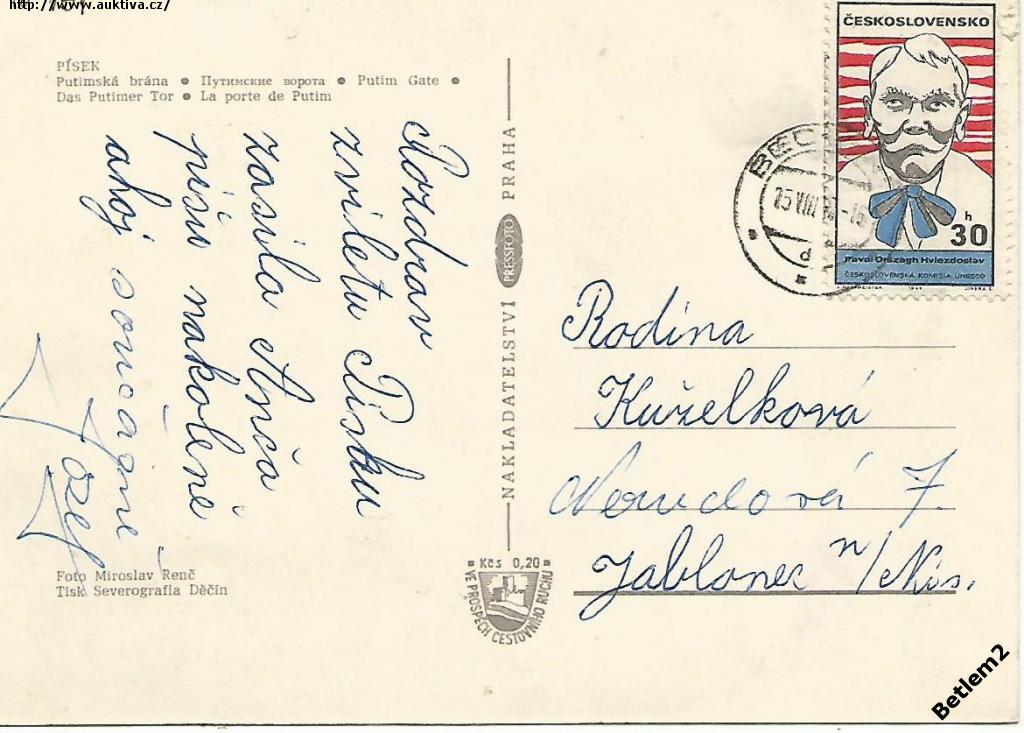 http://www.auktiva.cz/
PÍSEK
Putimská brána • Путимские ворота • Putim Gate •
Das Putimer Tor • La porte de Putim
Pozdrav
zvíletu Písku
zasílá Anča
píšu nakoleně
ahoj
Josef
NAKLADATELSTVÍ PRESSFOTO PRAHA
ČESKOSLOVENSKO
30 h
Pavol Országh Hviezdoslav
ČESKOSLOVENSKÁ KOMISIA UNESCO
Rodina
Kuželková
Nerudová 7.
Jablonec n/Nis.
Foto Miroslav Renč
Tisk Severografia Děčín
Kčs 0,20
VE PROSPĚCH CESTOVNÍHO RUCHU
Betlem2